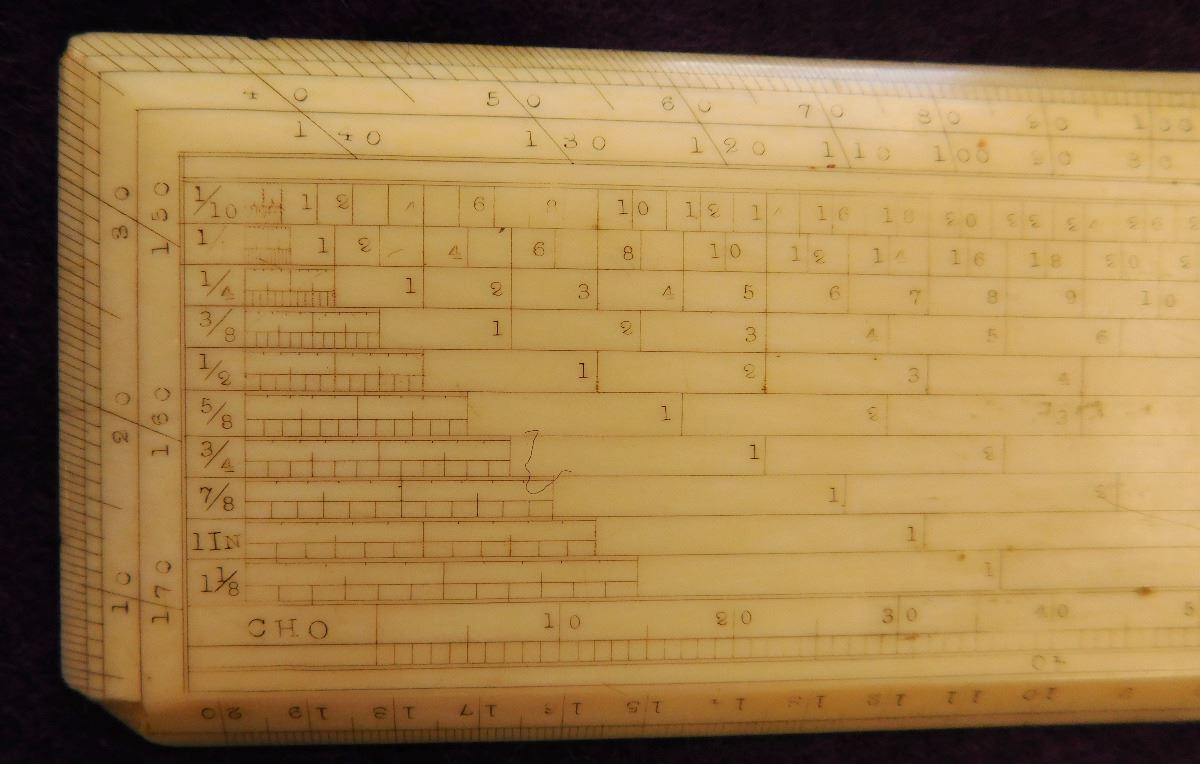 4 0 5 0 6 0 7 0 8 0 9 0 1 0 0
1 4 0 1 3 0 1 2 0 1 1 0 1 0 0 9 0 8 0
3 0
1 5 0
2 0
1 6 0
1 0
1 7 0
1/10 1 2 4 6 8 10 12 14 16 18 20 22 24 26
1 2 4 6 8 10 12 14 16 18 20 2
1/4 1 2 3 4 5 6 7 8 9 10
3/8 1 2 3 4 5 6
1/2 1 2 3 4
5/8 1 2 3
3/4 1 2
7/8 1 2
1IN 1
1 1/8 1
CHO 10 20 30 40 5
20 19 18 17 16 15 14 13 12 11 10 9